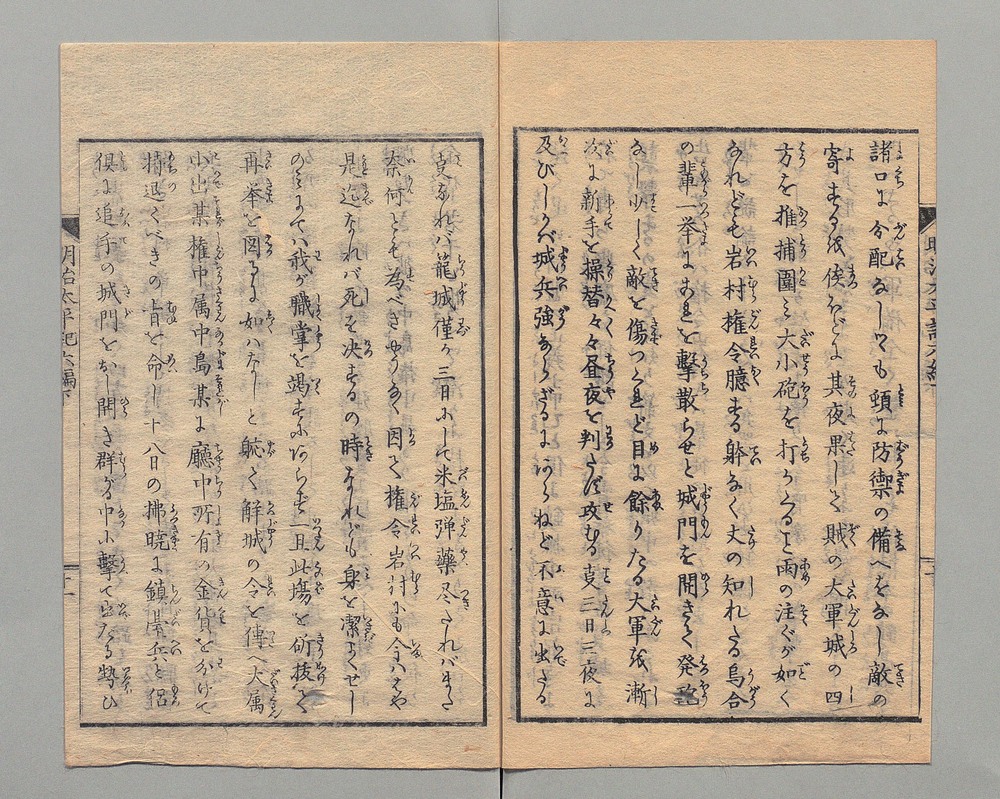 諸口に分配なしつも頻に防禦の備へをなし敵の
寄するを俟ほどに其夜果して賊の大軍城の四
方を推捕圍ミ大小砲を打かくること雨の注ぐが如く
なれども岩村権令臆する躰なく丈の知れたる烏合
の輩一挙にこれを撃散らせと城門を開きて発砲
なし少しく敵を傷つくれど目に餘りたる大軍ゆゑ漸
次に新手を操替々々昼夜を判たず攻むる事三日三夜に
及びしかバ城兵強あらざるにハあらねど不意に出たる
事なれバ篭城僅か三日にして米塩弾薬尽たれバまた
奈何とも為べきやうなく因て権令岩村にも今ハはや
是迄なれバ死を决するの時なれども身を潔よくせし
のミにてハ我が職掌を竭すにあらず一旦此塲を斫抜て
再挙を図るに如ハなしと軈て解城の令を傳へ大属
小出某権中属中島某に廳中所有の金貨を分けて
持退くべきの旨を命じ十八日の拂暁に鎮䑓兵と侶
倶に追手の城門をおし開き群がる中に撃て出たる勢ひ
明治太平記六編下